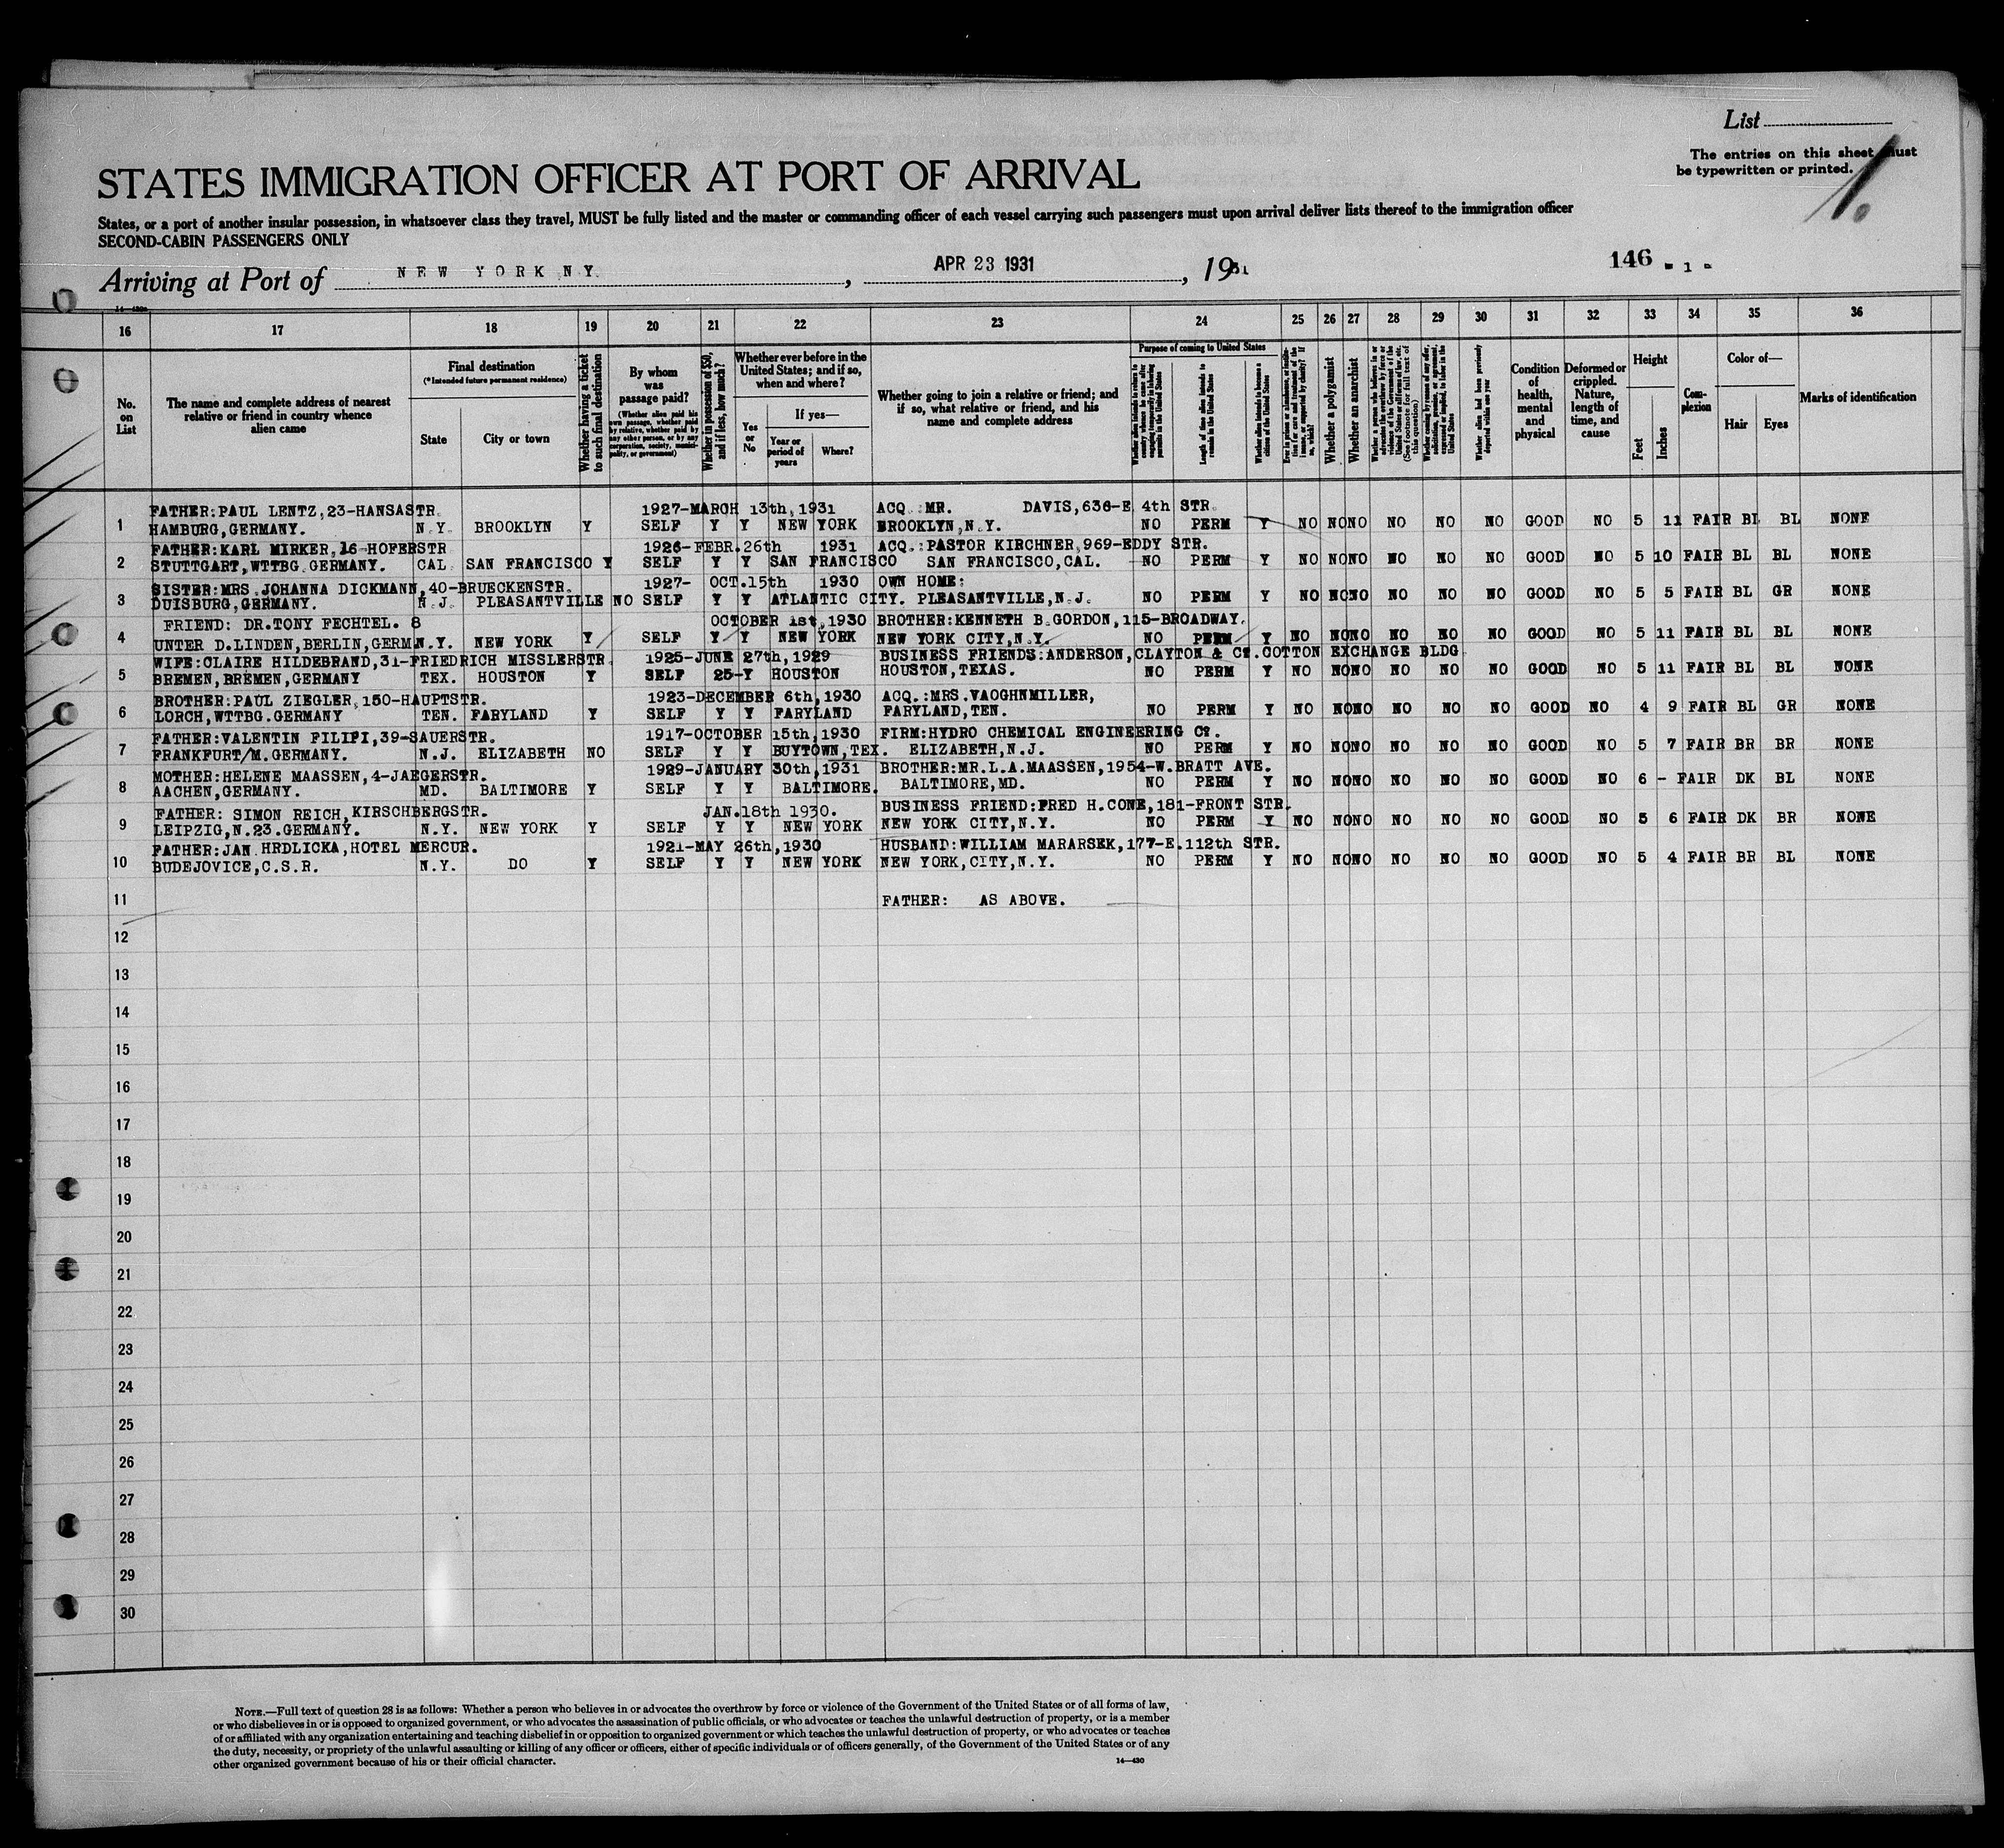 List
The entries on this sheet must
be typewritten or printed.
STATES IMMIGRATION OFFICER AT PORT OF ARRIVAL
States, or a port of another insular possession, in whatsoever class they travel, MUST be fully listed and the master or commanding officer of each vessel carrying such passengers must upon arrival deliver lists thereof to the immigration officer
SECOND-CABIN PASSENGERS ONLY
Arriving at Port of NEW YORK N Y. , APR 23 1931 , 1931
146 - 1 -
16 17 18 19 20 21 22 23 24 25 26 27 28 29 30 31 32 33 34 35 36
No. on List
The name and complete address of nearest relative or friend in country whence alien came
Final destination
(*Intended future permanent residence)
State
City or town
Whether having a ticket to such final destination
By whom was passage paid?
(Whether alien paid his own passage, whether paid by relative, whether paid by any other person, or by any corporation, society, municipality, or government)
Whether in possession of $50, and if less, how much?
Whether ever before in the United States; and if so, when and where?
Yes or No
If yes—
Year or period of years
Where?
Whether going to join a relative or friend; and if so, what relative or friend, and his name and complete address
Purpose of coming to United States
Length of time alien intends to remain in the United States
Whether alien intends to become a citizen of the United States
Whether a polygamist
Whether an anarchist
Whether alien had been previously deported within one year
Condition of health, mental and physical
Deformed or crippled. Nature, length of time, and cause
Height
Feet
Inches
Complexion
Color of—
Hair
Eyes
Marks of identification
FATHER:PAUL LENTZ,23-HANSASTR. 1927-MARCH 13th,1931 ACQ.:MR. DAVIS,636-E 4th STR.
1 HAMBURG,GERMANY. N.Y. BROOKLYN Y SELF Y Y NEW YORK BROOKLYN,N.Y. NO PERM Y NO NO NO NO NO NO GOOD NO 5 11 FAIR BL BL NONE
FATHER:KARL MIRKER,16-HOFERSTR 1926-FEBR.26th 1931 ACQ.:PASTOR KIRCHNER,969-EDDY STR.
2 STUTTGART,WTTBG.GERMANY. CAL. SAN FRANCISCO Y SELF Y Y SAN FRANCISCO SAN FRANCISCO,CAL. NO PERM Y NO NO NO NO NO NO GOOD NO 5 10 FAIR BL BL NONE
SISTER:MRS.JOHANNA DICKMANN,40-BRUECKENSTR. 1927- OCT.15th 1930 OWN HOME:
3 DUISBURG,GERMANY. N.J. PLEASANTVILLE NO SELF Y Y ATLANTIC CITY. PLEASANTVILLE,N.J. NO PERM Y NO NO NO NO NO NO GOOD NO 5 5 FAIR BL GR NONE
FRIEND: DR.TONY FECHTEL. 8 OCTOBER 1st,1930 BROTHER:KENNETH B.GORDON,115-BROADWAY.
4 UNTER D.LINDEN,BERLIN,GERM. N.Y. NEW YORK Y SELF Y Y NEW YORK NEW YORK CITY,N.Y. NO PERM Y NO NO NO NO NO NO GOOD NO 5 11 FAIR BL BL NONE
WIFE:CLAIRE HILDEBRAND,31-FRIEDRICH MISSLERSTR. 1925-JUNE 27th,1929 BUSINESS FRIENDS:ANDERSON,CLAYTON & Co.COTTON EXCHANGE BLDG.
5 BREMEN,BREMEN,GERMANY TEX. HOUSTON Y SELF 25-Y HOUSTON HOUSTON,TEXAS. NO PERM Y NO NO NO NO NO NO GOOD NO 5 11 FAIR BL BL NONE
BROTHER:PAUL ZIEGLER,150-HAUPTSTR. 1923-DECEMBER 6th,1930 ACQ.:MRS.VAOGHNMILLER,
6 LORCH,WTTBG.GERMANY TEN. FARYLAND Y SELF Y Y FARYLAND FARYLAND,TEN. NO PERM Y NO NO NO NO NO NO GOOD NO 4 9 FAIR BL GR NONE
FATHER:VALENTIN FILIPI,39-SAUERSTR. 1917-OCTOBER 15th,1930 FIRM:HYDRO CHEMICAL ENGINEERING Co.
7 FRANKFURT/M.GERMANY. N.J. ELIZABETH NO SELF Y Y BUYTOWN,TEX. ELIZABETH,N.J. NO PERM Y NO NO NO NO NO NO GOOD NO 5 7 FAIR BR BR NONE
MOTHER:HELENE MAASSEN,4-JAEGERSTR. 1929-JANUARY 30th,1931 BROTHER:MR.L.A.MAASSEN,1954-W.BRATT AVE.
8 AACHEN,GERMANY. MD. BALTIMORE Y SELF Y Y BALTIMORE. BALTIMORE,MD. NO PERM Y NO NO NO NO NO NO GOOD NO 6 - FAIR DK BL NONE
FATHER: SIMON REICH,KIRSCHBERGSTR. JAN.18th 1930. BUSINESS FRIEND:FRED H.CONE,181-FRONT STR.
9 LEIPZIG,N.23.GERMANY. N.Y. NEW YORK Y SELF Y Y NEW YORK NEW YORK CITY,N.Y. NO PERM Y NO NO NO NO NO NO GOOD NO 5 6 FAIR DK BR NONE
FATHER:JAN HRDLICKA,HOTEL MERCUR. 1921-MAY 26th,1930 HUSBAND:WILLIAM MARARSEK,177-E.112th STR.
10 BUDEJOVICE,C.S.R. N.Y. DO Y SELF Y Y NEW YORK NEW YORK,CITY,N.Y. NO PERM Y NO NO NO NO NO NO GOOD NO 5 4 FAIR BR BL NONE
11 FATHER: AS ABOVE.
12
13
14
15
16
17
18
19
20
21
22
23
24
25
26
27
28
29
30
NOTE.—Full text of question 28 is as follows: Whether a person who believes in or advocates the overthrow by force or violence of the Government of the United States or of all forms of law,
or who disbelieves in or is opposed to organized government, or who advocates the assassination of public officials, or who advocates or teaches the unlawful destruction of property, or is a member
of or affiliated with any organization entertaining and teaching disbelief in or opposition to organized government or which teaches the unlawful destruction of property, or who advocates or teaches
the duty, necessity, or propriety of the unlawful assaulting or killing of any officer or officers, either of specific individuals or of officers generally, of the Government of the United States or of any
other organized government because of his or their official character.
14—430